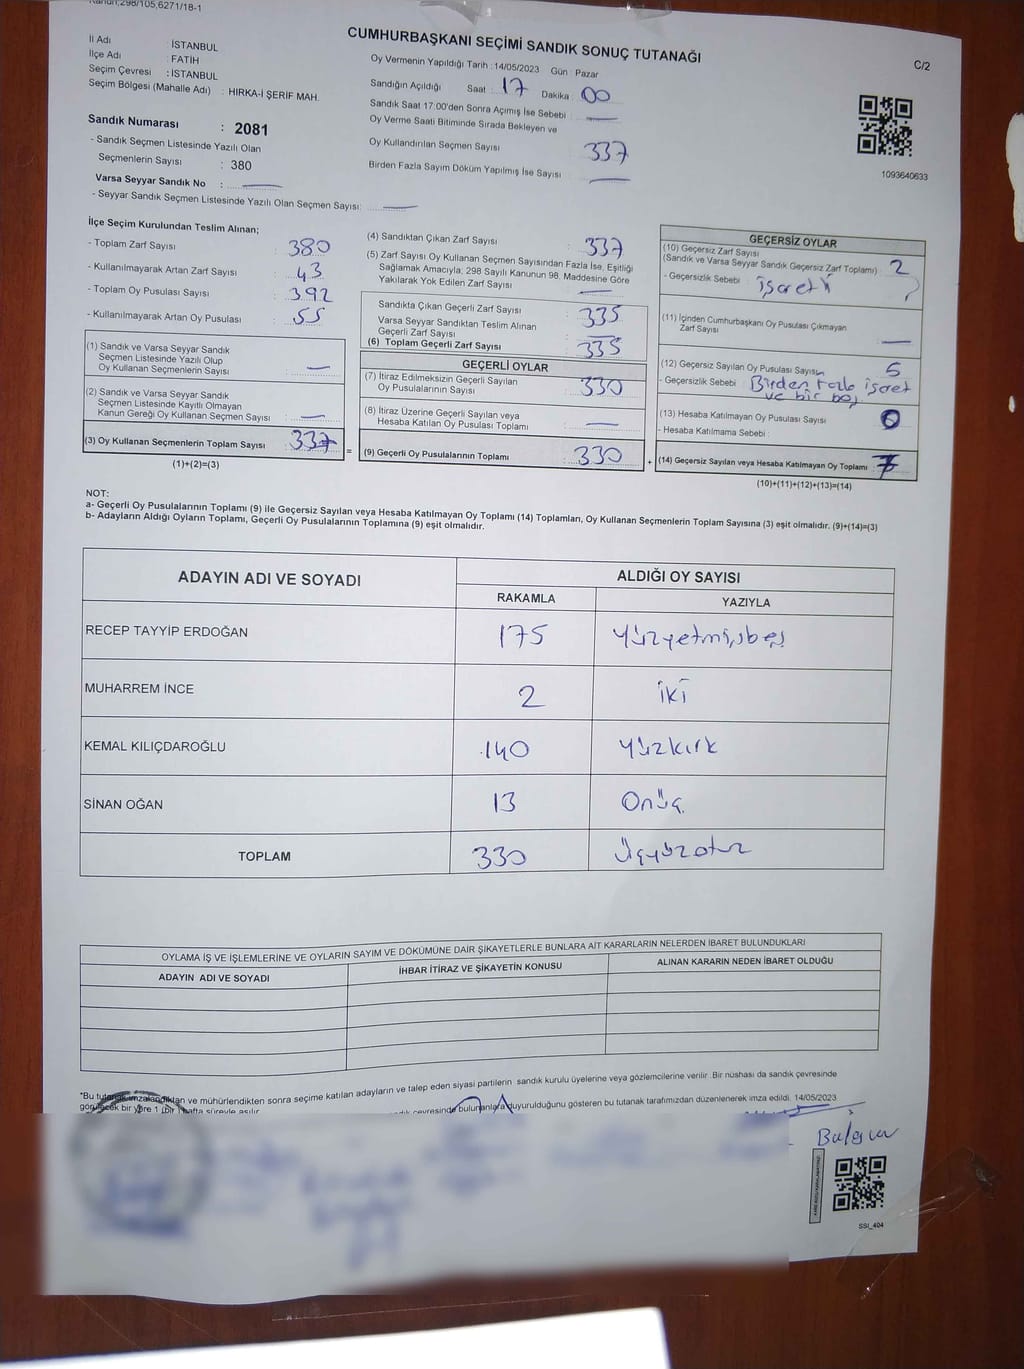 Kanun,298/105,6271/18-1
CUMHURBAŞKANI SEÇİMİ SANDIK SONUÇ TUTANAĞI
C/2
İl Adı : İSTANBUL
İlçe Adı : FATİH
Seçim Çevresi : İSTANBUL
Seçim Bölgesi (Mahalle Adı) : HIRKA-İ ŞERİF MAH.
Sandık Numarası : 2081
- Sandık Seçmen Listesinde Yazılı Olan
Seçmenlerin Sayısı : 380
Varsa Seyyar Sandık No :
- Seyyar Sandık Seçmen Listesinde Yazılı Olan Seçmen Sayısı:
Oy Vermenin Yapıldığı Tarih :14/05/2023 Gün : Pazar
Sandığın Açıldığı Saat : 17 Dakika : 00
Sandık Saat 17:00'den Sonra Açımış İse Sebebi :
Oy Verme Saati Bitiminde Sırada Bekleyen ve
Oy Kullandırılan Seçmen Sayısı : 337
Birden Fazla Sayım Döküm Yapılmış İse Sayısı :
1093640633
İlçe Seçim Kurulundan Teslim Alınan;
- Toplam Zarf Sayısı : 380
- Kullanılmayarak Artan Zarf Sayısı : 43
- Toplam Oy Pusulası Sayısı : 392
- Kullanılmayarak Artan Oy Pusulası : 55
(1) Sandık ve Varsa Seyyar Sandık
Seçmen Listesinde Yazılı Olup
Oy Kullanan Seçmenlerin Sayısı :
(2) Sandık ve Varsa Seyyar Sandık
Seçmen Listesinde Kayıtlı Olmayan
Kanun Gereği Oy Kullanan Seçmen Sayısı :
(3) Oy Kullanan Seçmenlerin Toplam Sayısı : 337
(1)+(2)=(3)
=
(4) Sandıktan Çıkan Zarf Sayısı : 337
(5) Zarf Sayısı Oy Kullanan Seçmen Sayısından Fazla İse, Eşitliği
Sağlamak Amacıyla, 298 Sayılı Kanunun 98. Maddesine Göre
Yakılarak Yok Edilen Zarf Sayısı :
Sandıkta Çıkan Geçerli Zarf Sayısı : 335
Varsa Seyyar Sandıktan Teslim Alınan
Geçerli Zarf Sayısı :
(6) Toplam Geçerli Zarf Sayısı : 335
GEÇERLİ OYLAR
(7) İtiraz Edilmeksizin Geçerli Sayılan
Oy Pusulalarının Sayısı : 330
(8) İtiraz Üzerine Geçerli Sayılan veya
Hesaba Katılan Oy Pusulası Toplamı :
(9) Geçerli Oy Pusulalarının Toplamı : 330
+
GEÇERSİZ OYLAR
(10) Geçersiz Zarf Sayısı
(Sandık ve Varsa Seyyar Sandık Geçersiz Zarf Toplamı) : 2
- Geçersizlik Sebebi : işaretli
(11) İçinden Cumhurbaşkanı Oy Pusulası Çıkmayan
Zarf Sayısı :
(12) Geçersiz Sayılan Oy Pusulası Sayısı : 5
- Geçersizlik Sebebi : Birden fazla işaret
ve bir boş
(13) Hesaba Katılmayan Oy Pusulası Sayısı : 0
- Hesaba Katılmama Sebebi :
(14) Geçersiz Sayılan veya Hesaba Katılmayan Oy Toplamı : 7
(10)+(11)+(12)+(13)=(14)
NOT:
a- Geçerli Oy Pusulalarının Toplamı (9) ile Geçersiz Sayılan veya Hesaba Katılmayan Oy Toplamı (14) Toplamları, Oy Kullanan Seçmenlerin Toplam Sayısına (3) eşit olmalıdır. (9)+(14)=(3)
b- Adayların Aldığı Oyların Toplamı, Geçerli Oy Pusulalarının Toplamına (9) eşit olmalıdır.
ADAYIN ADI VE SOYADI ALDIĞI OY SAYISI
RAKAMLA YAZIYLA
RECEP TAYYİP ERDOĞAN 175 Yüzyetmişbeş
MUHARREM İNCE 2 iki
KEMAL KILIÇDAROĞLU 140 Yüzkırk
SİNAN OĞAN 13 Onüç
TOPLAM 330 Üçyüzotuz
OYLAMA İŞ VE İŞLEMLERİNE VE OYLARIN SAYIM VE DÖKÜMÜNE DAİR ŞİKAYETLERLE BUNLARA AİT KARARLARIN NELERDEN İBARET BULUNDUKLARI
ADAYIN ADI VE SOYADI İHBAR İTİRAZ VE ŞİKAYETİN KONUSU ALINAN KARARIN NEDEN İBARET OLDUĞU
*Bu tutanak imzalandıktan ve mühürlendikten sonra seçime katılan adayların ve talep eden siyasi partilerin sandık kurulu üyelerine veya gözlemcilerine verilir. Bir nüshası da sandık çevresinde
görülecek bir yere 1 (bir) hafta süreyle asılır. çevresinde bulunanlara duyurulduğunu gösteren bu tutanak tarafımızdan düzenlenerek imza edildi. 14/05/2023
SSI_404